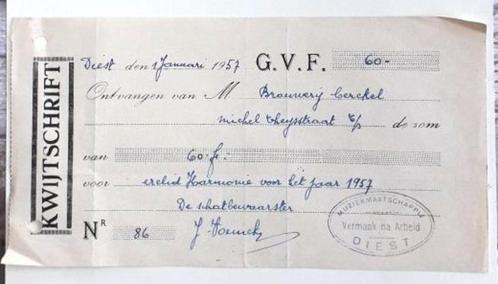 KWIJTSCHRIFT
Diest den 1 Januari 1957 G.V.F. 60-
Ontvangen van M Brouwery Cerckel
Michel Theysstraat E/S de som
van 60 fr:
voor erelid Harmonie voor het jaar 1957
De schatbewaarster
Nr 86 J.
MUZIEKMAATSCHAPPIJ
Vermaak na Arbeid
DIEST